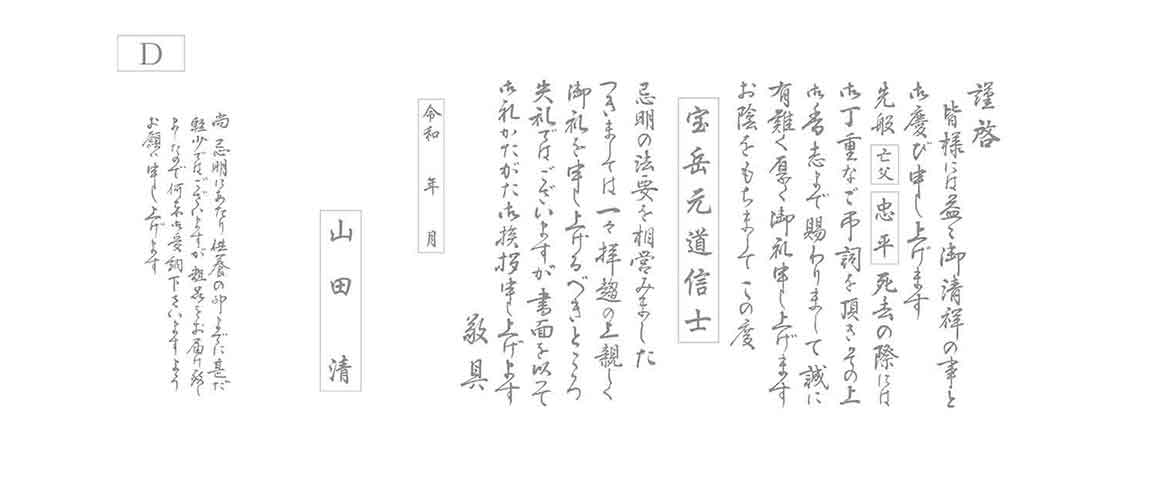 D
謹啓
皆様には益々御清祥の事と
御慶び申し上げます
先般 亡父 忠平 死去の際には
御丁重なご弔詞を頂きその上
御香志まで賜わりまして誠に
有難く厚く御礼申し上げます
お陰をもちましてこの度
宝岳元道信士
忌明の法要を相営みました
つきましては一々拝趨の上親しく
御礼を申し上げるべきところ
失礼ではございますが書面を以って
御礼かたがた御挨拶申し上げます
敬具
令和 年 月
山田 清
尚 忌明にあたり供養の印までに甚だ
軽少ではございますが粗品をお届け致し
ましたので何卒御受納下さいますよう
お願い申し上げます